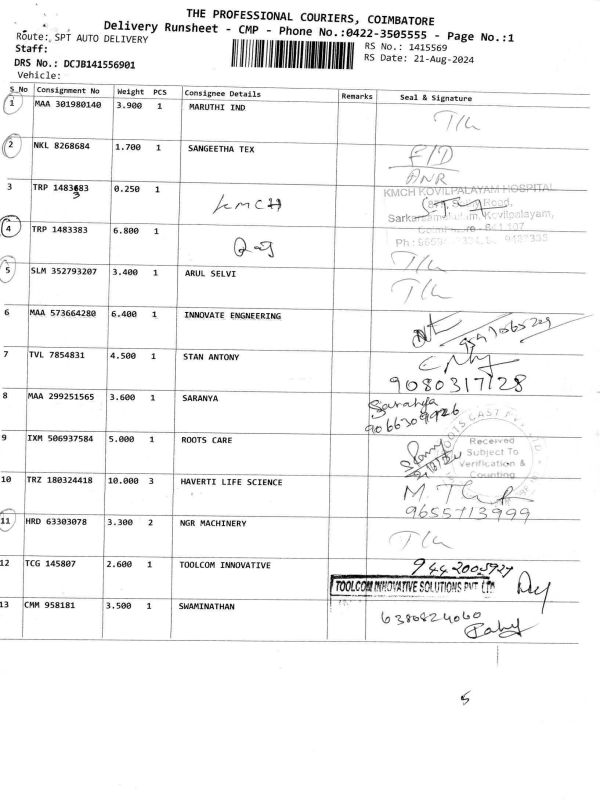 THE PROFESSIONAL COURIERS, COIMBATORE
Delivery Runsheet - CMP - Phone No.:0422-3505555 - Page No.:1
Route: SPT AUTO DELIVERY
RS No.: 1415569
Staff:
RS Date: 21-Aug-2024
DRS No.: DCJB141556901
Vehicle:
S_No Consignment No Weight PCS Consignee Details Remarks Seal & Signature
1 MAA 301980140 3.900 1 MARUTHI IND
2 NKL 8268684 1.700 1 SANGEETHA TEX
3 TRP 1483383 0.250 1 KMCH
KMCH KOVILPALAYAM HOSPITAL
Road,
Kovilpalayam,
4 TRP 1483383 6.800 1 Raj
5 SLM 352793207 3.400 1 ARUL SELVI
6 MAA 573664280 6.400 1 INNOVATE ENGNEERING
7 TVL 7854831 4.500 1 STAN ANTONY
9080317128
8 MAA 299251565 3.600 1 SARANYA Saranya
9 IXM 506937584 5.000 1 ROOTS CARE
Received
Subject To
Verification &
Counting
10 TRZ 180324418 10.000 3 HAVERTI LIFE SCIENCE
9655713999
11 HRD 63303078 3.300 2 NGR MACHINERY
12 TCG 145807 2.600 1 TOOLCOM INNOVATIVE
TOOLCOM INNOVATIVE SOLUTIONS PVT LTD
13 CMM 958181 3.500 1 SWAMINATHAN 6380824060